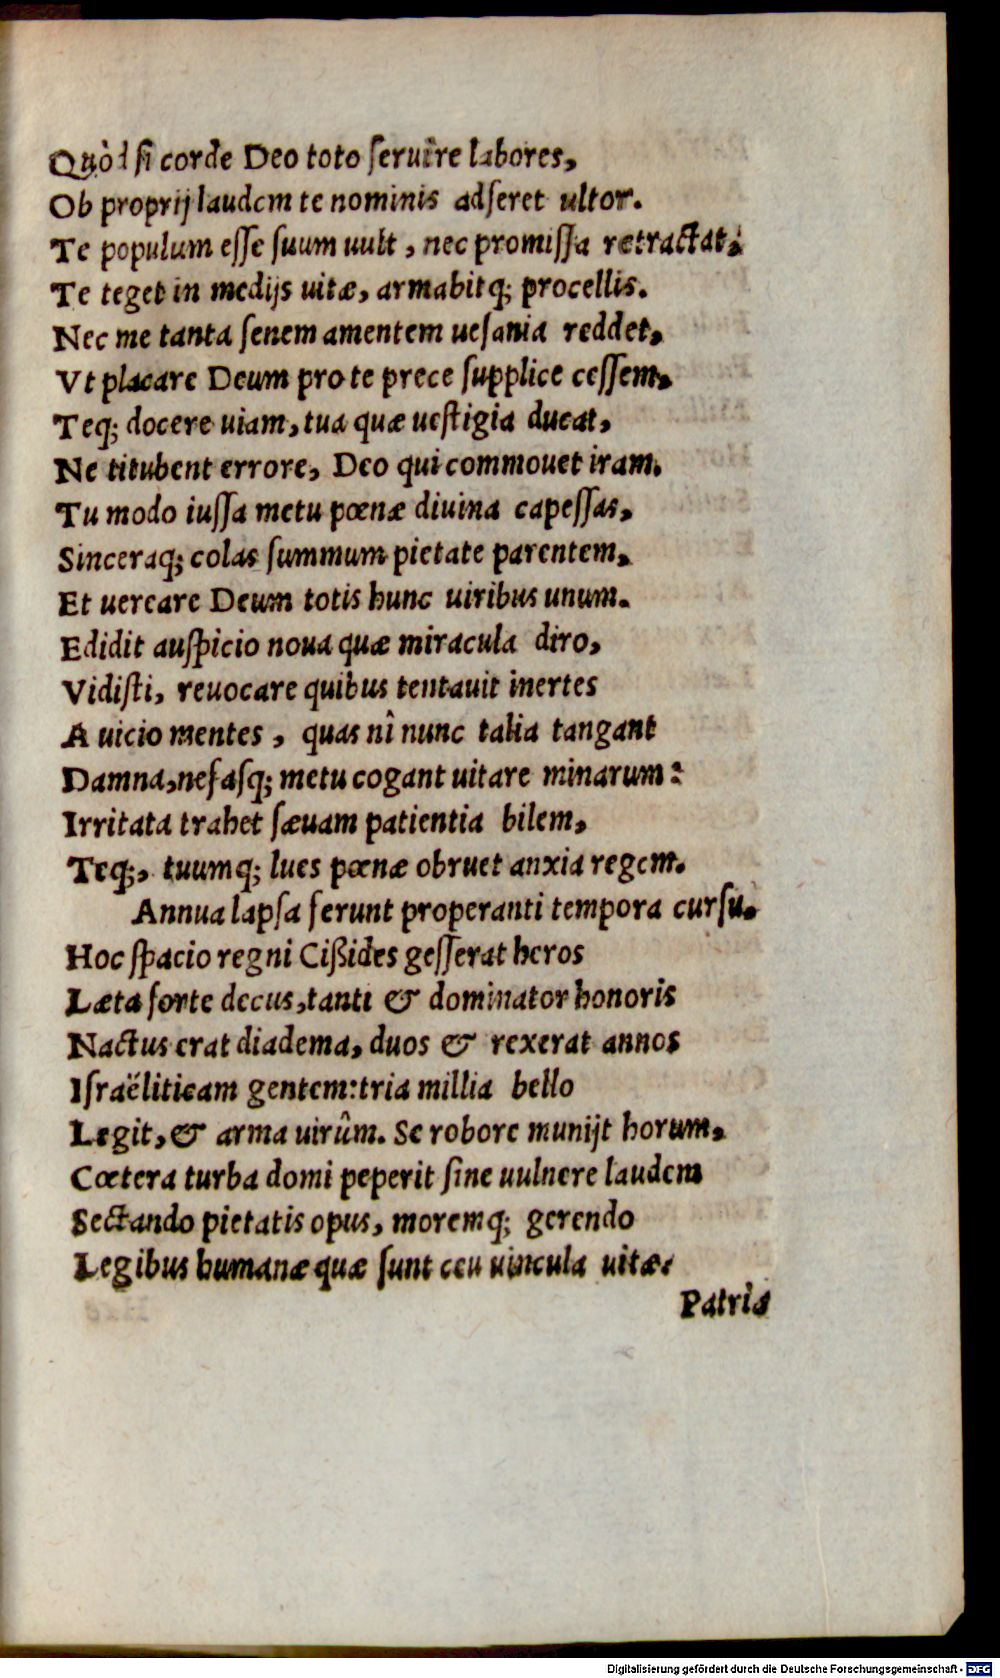 Quòd si corde Deo toto seruîre labores,
Ob proprij laudem te nominis adseret ultor.
Te populum esse suum uult, nec promissa retractat,
Te teget in medijs uitæ, armabitq; procellis.
Nec me tanta senem amentem uesania reddet,
Vt placare Deum pro te prece supplice cessem,
Teq; docere uiam, tua quæ uestigia ducat,
Ne titubent errore, Deo qui commouet iram.
Tu modo iussa metu pœnæ diuina capessas,
Sinceraq; colas summum pietate parentem,
Et uereare Deum totis hunc uiribus unum.
Edidit auspicio noua quæ miracula diro,
Vidisti, reuocare quibus tentauit inertes
A uicio mentes, quas nî nunc talia tangant
Damna, nefasq; metu cogant uitare minarum:
Irritata trahet sæuam patientia bilem,
Teq;, tuumq; lues pœnæ obruet anxia regem.
Annua lapsa ferunt properanti tempora cursu.
Hoc spacio regni Cißides gesserat heros
Læta sorte decus, tanti & dominator honoris
Nactus erat diadema, duos & rexerat annos
Israëliticam gentem: tria millia bello
Legit, & arma uirûm. Se robore munijt horum,
Cœtera turba domi peperit sine uulnere laudem
Sectando pietatis opus, moremq; gerendo
Legibus humanæ quæ sunt ceu uincula uitæ.
Patria
Digitalisierung gefördert durch die Deutsche Forschungsgemeinschaft - DFG